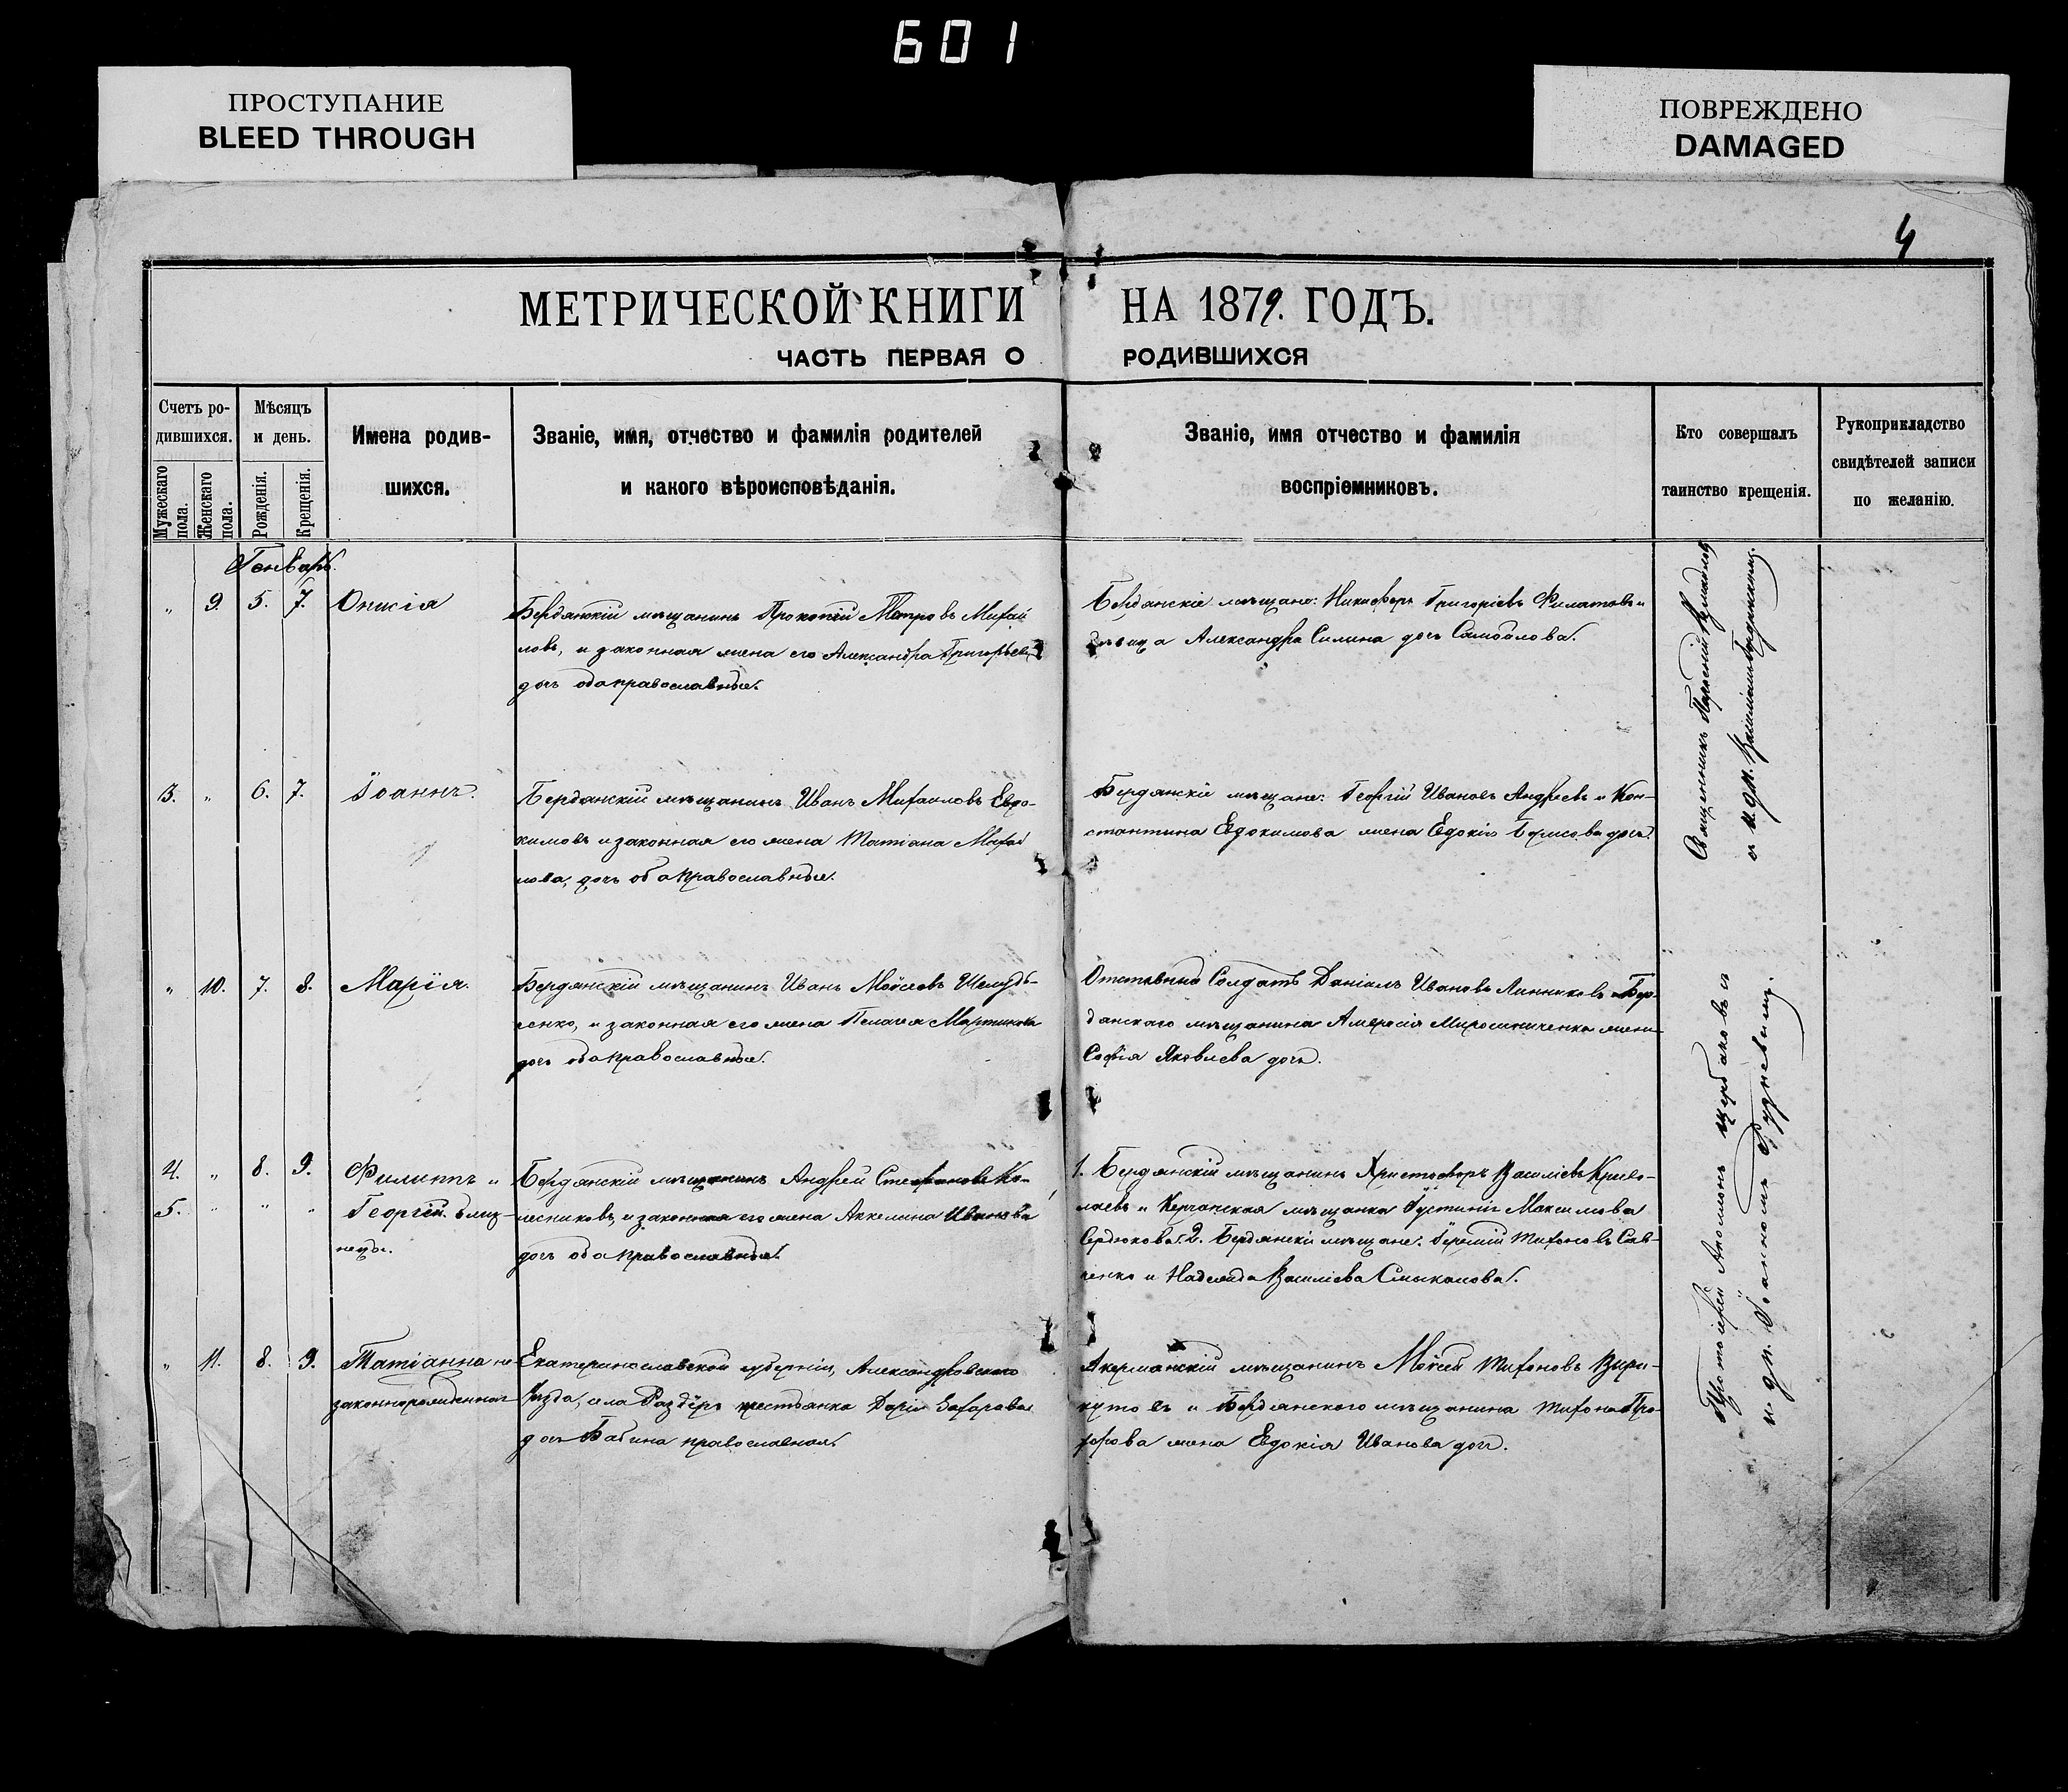 601
ПРОСТУПАНИЕ
BLEED THROUGH
ПОВРЕЖДЕНО
DAMAGED
4
МЕТРИЧЕСКОЙ КНИГИ НА 1879. ГОДЪ.
ЧАСТЬ ПЕРВАЯ О РОДИВШИХСЯ
Счетъ ро-
дившихся.
Мужескаго пола.
Женскаго пола.
Мѣсяцъ
и день.
Рожденія.
Крещенія.
Имена родив-
шихся.
Званіе, имя, отчество и фамилія родителей
и какого вѣроисповѣданія.
Званіе, имя отчество и фамилія
воспріемниковъ.
Кто совершалъ
таинство крещенія.
Рукоприкладство
свидѣтелей записи
по желанію.
Генварь.
" 9. 5. 7. Онисія
Бердянскій мѣщанинъ Прокопій Петровъ Михай
ловъ, и законная жена его Александра Григорьева
дочь оба православные.
Бердянскіе мѣщане: Никифоръ Григоріевъ Филатовъ и
Александра Силина дочь Самойлова.
Священникъ
и. д. п.
3. " 6. 7. Іоаннъ.
Бердянскій мѣщанинъ Иванъ Михаиловъ Евдо-
кимовъ и законная его жена Татіана Михай
лова, дочь оба православные.
Бердянскіе мѣщане: Георгій Ивановъ Андреевъ и Кон-
стантина Евдокимова жена Евдокія Борисова дочь.
" 10. 7. 8. Марія.
Бердянскій мѣщанинъ Иванъ Моѵсеевъ
и законная его жена Пелагея Мартинова
дочь оба православные.
Отставный Солдатъ Даніилъ Ивановъ Линниковъ и Бер-
дянскаго мѣщанина Мирошниченка жена
Софія Яковлева дочь.
4. " 8. 9. Филиппъ и
5. " " " Георгій близ-
нецы.
Бердянскій мѣщанинъ Андрей Стефановъ Ко-
лесниковъ, и законная его жена Аккелина Иванова
дочь оба православные.
1. Бердянскій мѣщанинъ Христофоръ Василіевъ Криво-
лаевъ и Керчанская мѣщанка Іустинія Максимова
Сердюкова. 2. Бердянскіе мѣщане: Іеремій Тихоновъ Сав-
ченко и Надежда Василіева Смыкалова.
Протоіерей Щербаковъ и
и. д. п. Іоанномъ Рудневымъ.
" 11. 8. 9. Татіанна не
законнорожденная
Екатеринославской губерніи, Александровскаго
Уѣзда, села Раздоръ крестьянка Дарія Захарова
дочь Бабина православная.
Акерманскій мѣщанинъ Моѵсей Тихоновъ Вири-
кутовъ и Бердянскаго мѣщанина Тихона Про-
хорова жена Евдокія Иванова дочь.